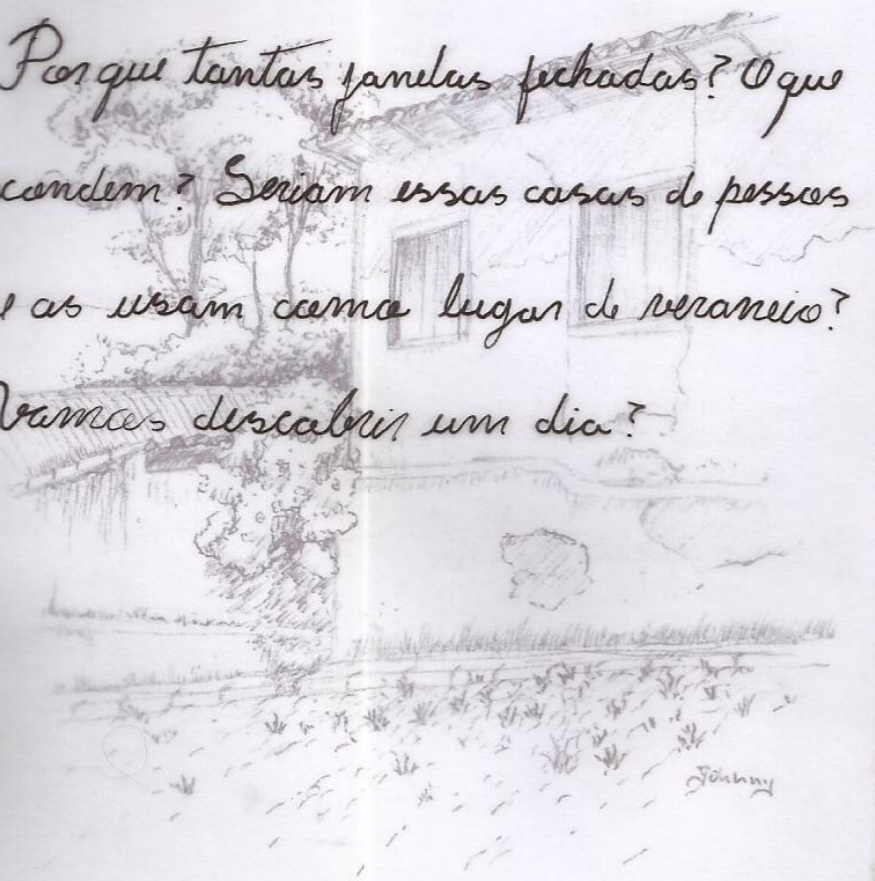 Por que tantas janelas fechadas? O que
condem? Seriam essas casas de pessoas
e as usam como lugar de veraneio?
Vamos descobrir um dia?
Johnny